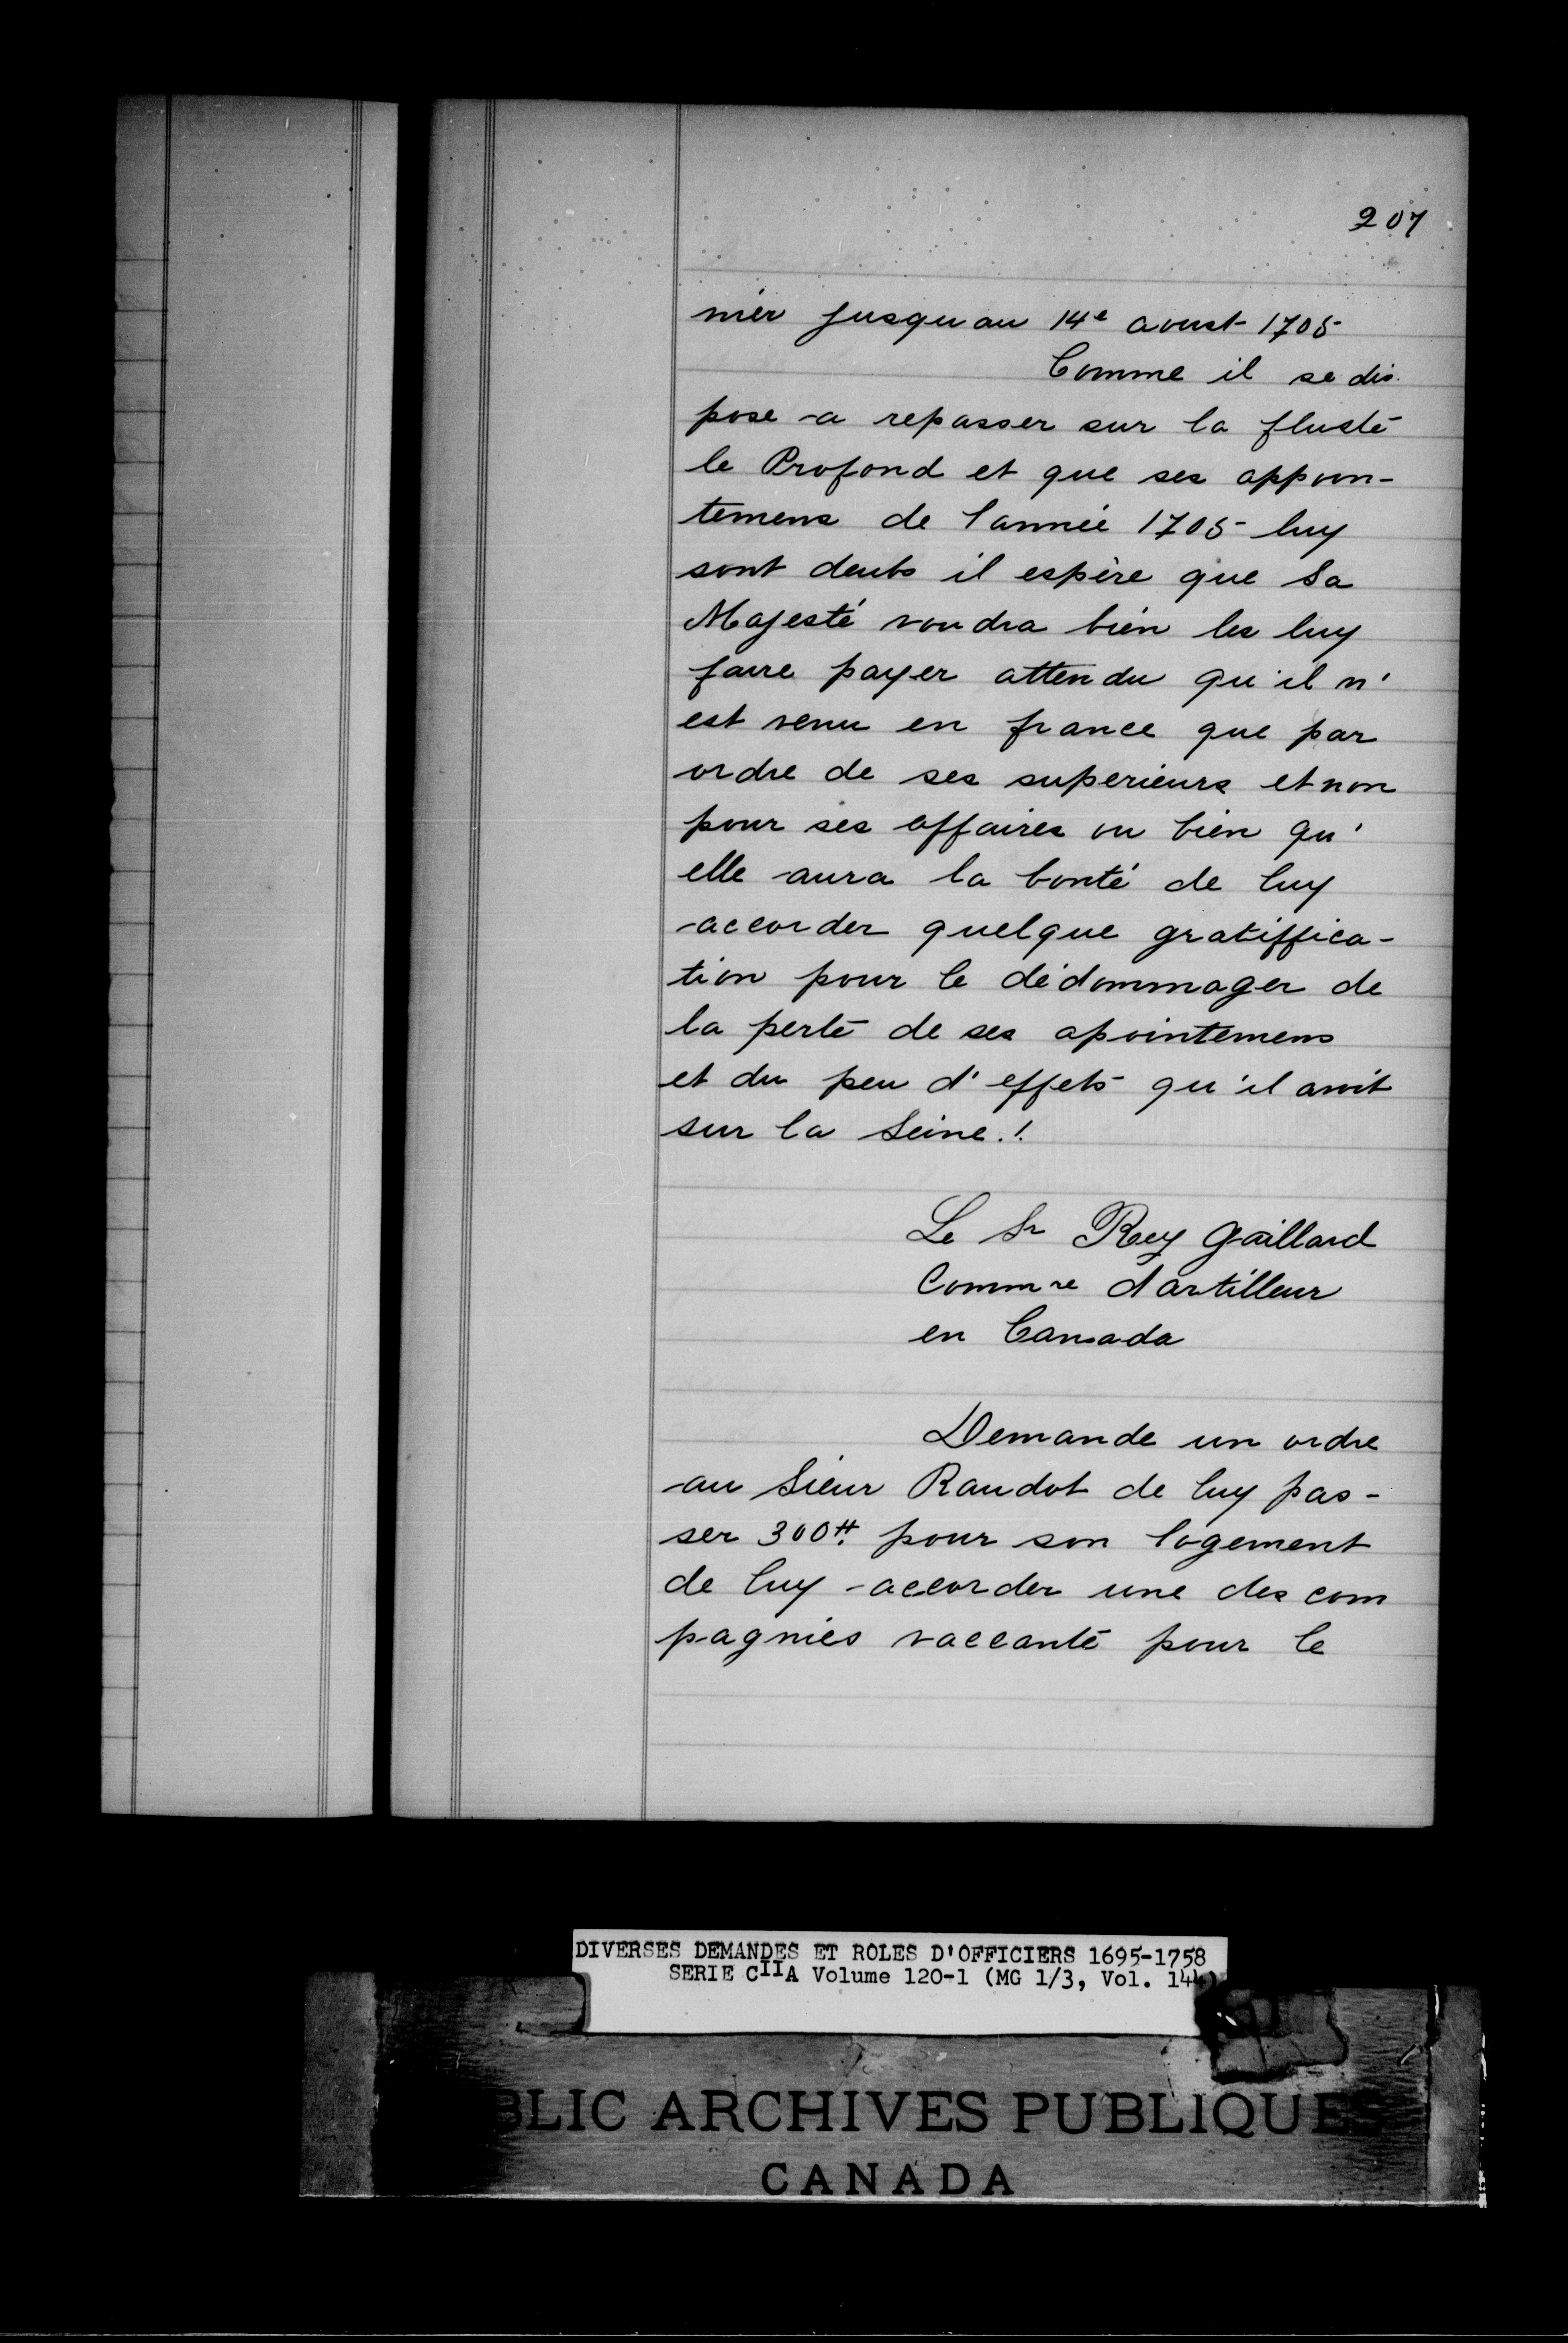 207
nier jusqu au 14e aoust 1705
Comme il se dis-
pose a repasser sur la fluste
le Profond et que ses appoin-
temens de l année 1705 luy
sont deubs il espère que Sa
Majesté voudra bien les luy
faire payer attendu qu'il n'
est venu en france que par
ordre de ses superieurs et non
pour ses affaires ou bien qu'
elle aura la bonté de luy
accorder quelque gratiffica-
tion pour le dédommager de
la perte de ses apointemens
et du peu d'effets qu'il avoit
sur la Seine./.
Le Sr Rey Gaillard
Commre d artilleur
en Canada
Demande un ordre
au Sieur Raudot de luy pas-
ser 300tt pour son logement
de luy accorder une des com
pagnies vaccante pour le
DIVERSES DEMANDES ET ROLES D'OFFICIERS 1695-1758
SERIE CIIA Volume 120-1 (MG 1/3, Vol. 144)
BLIC ARCHIVES PUBLIQUES
CANADA